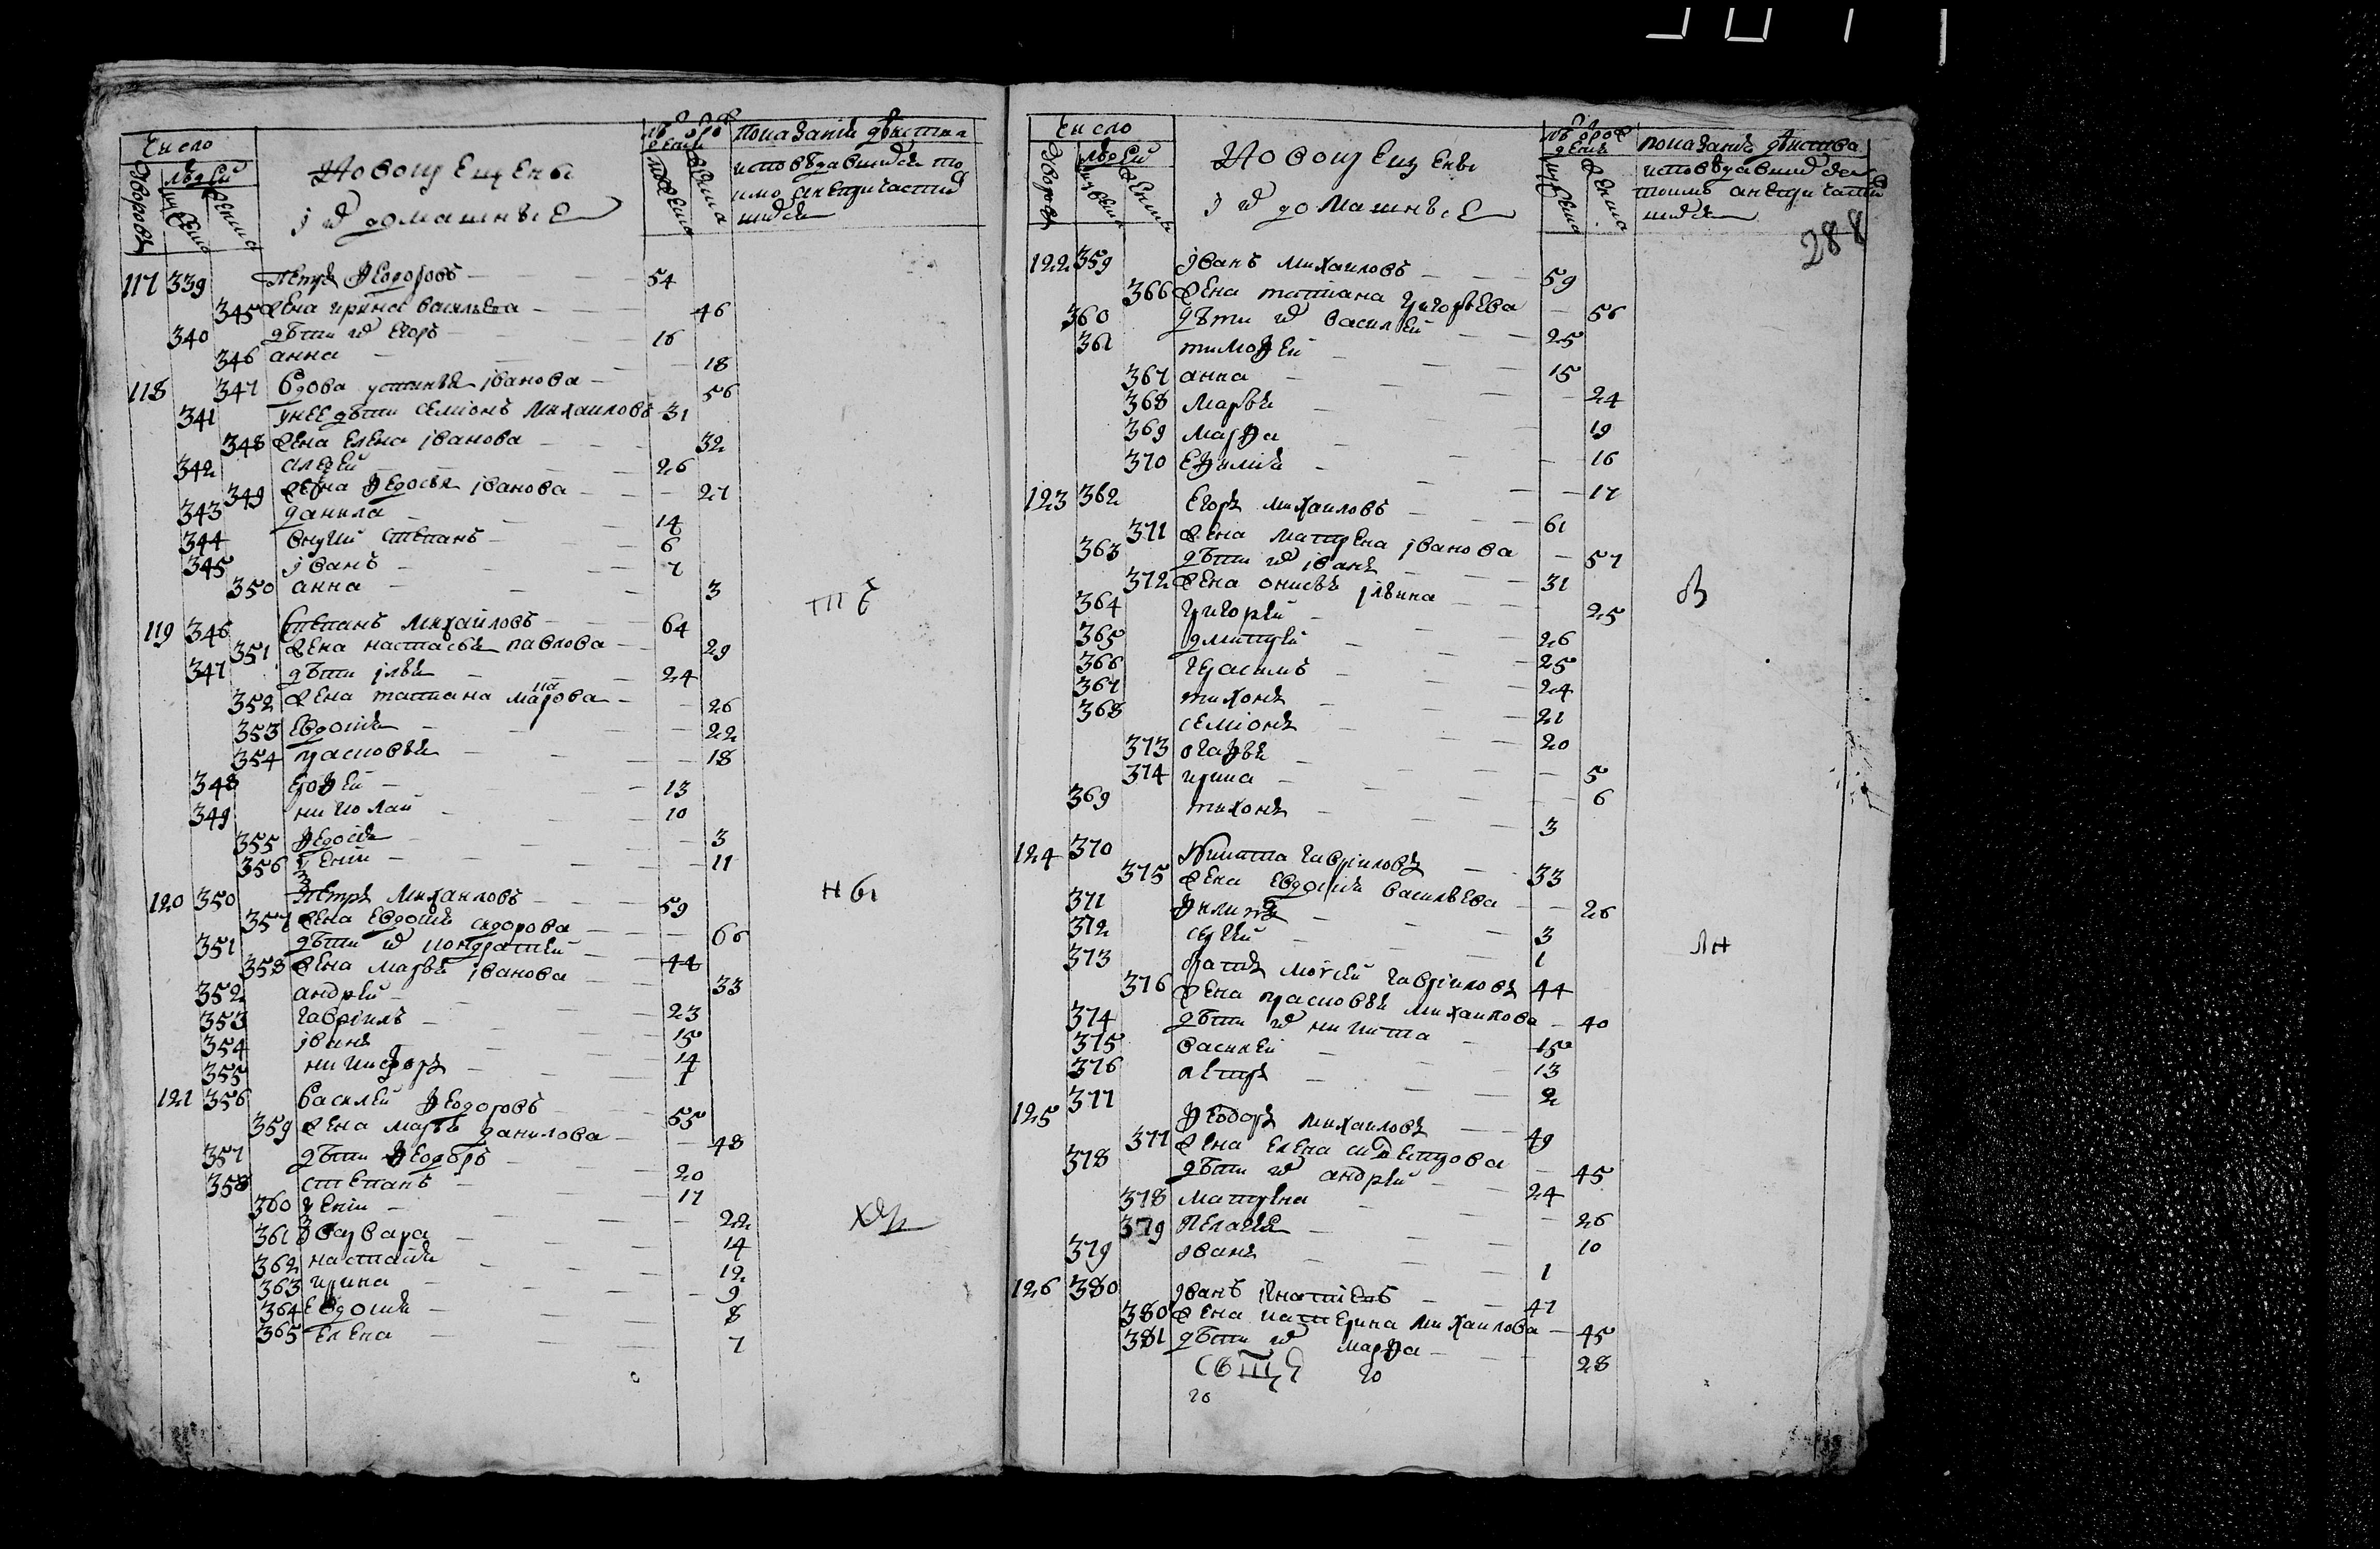 Число
людей
дворовъ
мужеска
женска
Новокрещены
и ихъ домашные
мужеска
женска
показаніе действа
117 339 Петръ Феодоровъ 54
345 жена ирина васильева 46
340 дѣти ихъ Егоръ 16
346 анна 18
118 347 вдова устинья іванова 56
341 унее дѣти семіонъ михаиловъ 31
348 жена елена іванова 32
342 алеѯей 26
349 жена федосья іванова 27
343 данила 14
344 внуки степанъ 6
345 іванъ 7
350 анна 3
119 346 степанъ михаиловъ 64
351 жена настасья павлова 29
347 дѣти ілья 24
352 жена татиана маркова 26
353 евдокия 22
354 прасковья 18
348 ерофей 13
349 николай 10
355 федосия 3
356 ѯения 11
120 350 Петръ михаиловъ 59
357 жена евдокия сидорова 66
351 дѣти ихъ кондратей 44
358 жена марья іванова 33
352 андрей 23
353 гавріилъ 15
354 іванъ 14
355 никифоръ 1
121 356 василей феодоровъ 55
359 жена марья данилова 48
357 дѣти феодоръ 20
358 степанъ 17
360 ѯения 22
361 варвара 14
362 настасия 12
363 ирина 9
364 евдокия 8
365 елена 7
тѣ
ны
хъ
Число
людей
дворовъ
мужеска
женска
Новокрещены
и ихъ домашные
мужеска
женска
показаніе действа
288
122 359 іванъ михаиловъ 59
366 жена татиана григорьева 56
360 дѣти ихъ василей 25
361 тимофей 15
367 анна 24
368 марья 19
369 марфа 16
370 ефимія 17
123 362 Егоръ михаиловъ 61
371 жена матрена іванова 57
363 дѣти ихъ іванъ 31
372 жена онисья ільина 25
364 григорей 26
365 дмитрей 25
366 герасимъ 24
367 тихонъ 21
368 семіонъ 20
373 агафья 5
374 ирина 6
369 тихонъ 3
124 370 Никита гавріиловъ 33
375 жена евдокия васильева 26
371 филипъ 3
372 сергей 1
373 братъ моісей гавріиловъ 44
376 жена прасковья михаилова 40
374 дѣти ихъ никита 15
375 василей 13
376 петръ 2
125 377 феодоръ михаиловъ 49
377 жена елена 45
378 дѣти ихъ андрей 24
378 матрена 26
379 пелагия 10
379 іванъ 1
126 380 іванъ 47
380 жена катерина михаилова 45
381 дѣти ихъ марфа 28